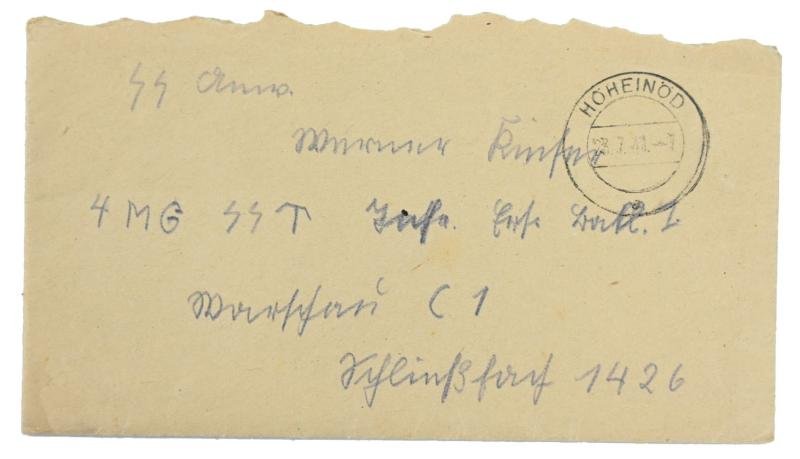 SS Anw.
HÖHEINÖD
Werner
23.7.41.-7
a
4 MG SS T Inf. Ers. Batl. I.
Warschau C 1
Schließfach 1426